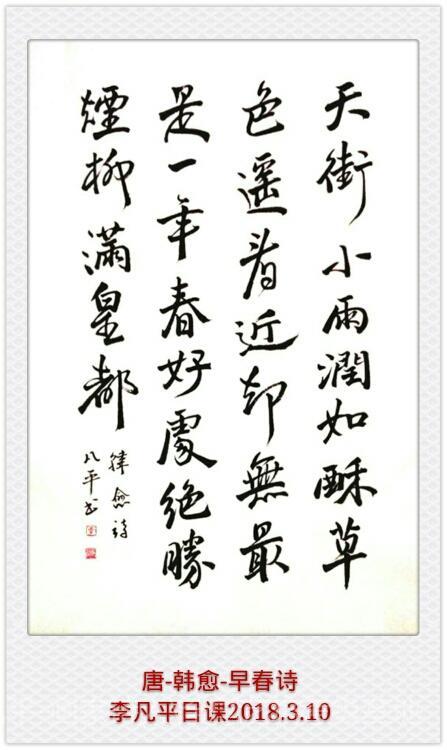 天街小雨潤如酥草
色遥看近却無最
是一年春好處絶勝
煙柳滿皇都
韓愈詩
凡平书
唐-韩愈-早春诗
李凡平日课2018.3.10